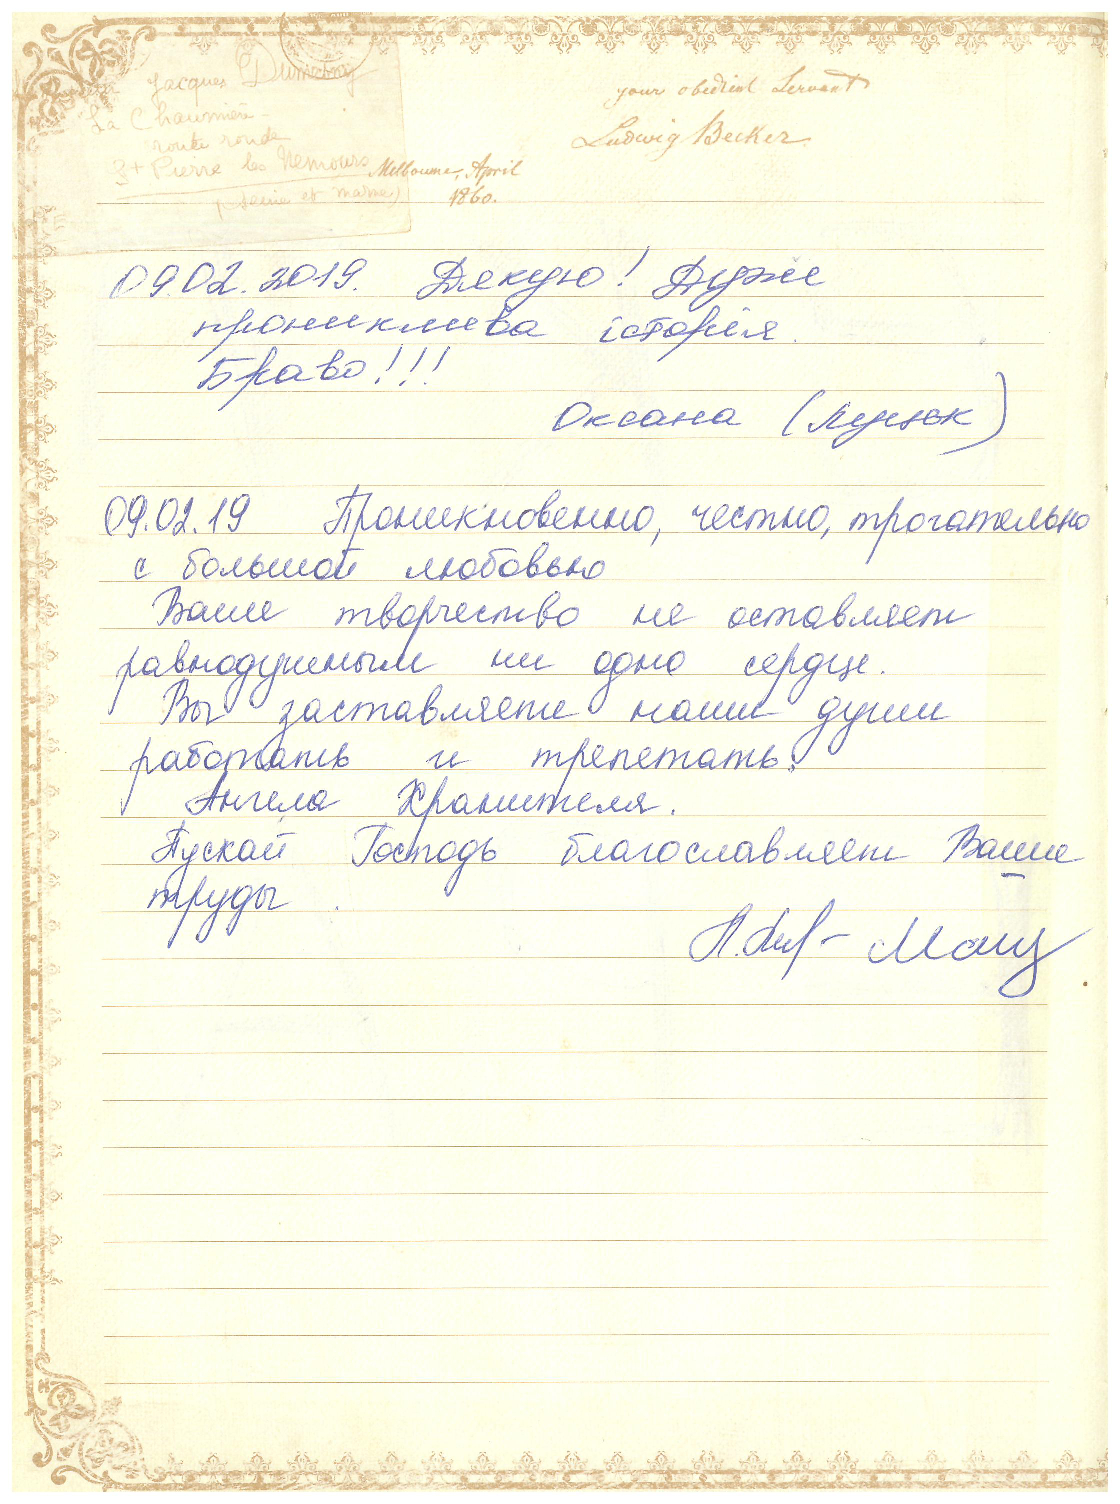 Jacques Dumesny
La Chaumière
route ronde
St Pierre les Nemours
(Seine et marne)
your obedient Servant
Ludwig Becker
Melbourne, April
1860.
09.02.2019. Дякую! Дуже
прониклива історія.
Браво!!!
Оксана (Луцьк)
09.02.19 Проникновенно, честно, трогательно
с большой любовью
Ваше творчество не оставляет
равнодушным ни одно сердце.
Вы заставляете наши души
работать и трепетать.
Ангела Хранителя.
Пускай Господь благославляет Ваше
труды.